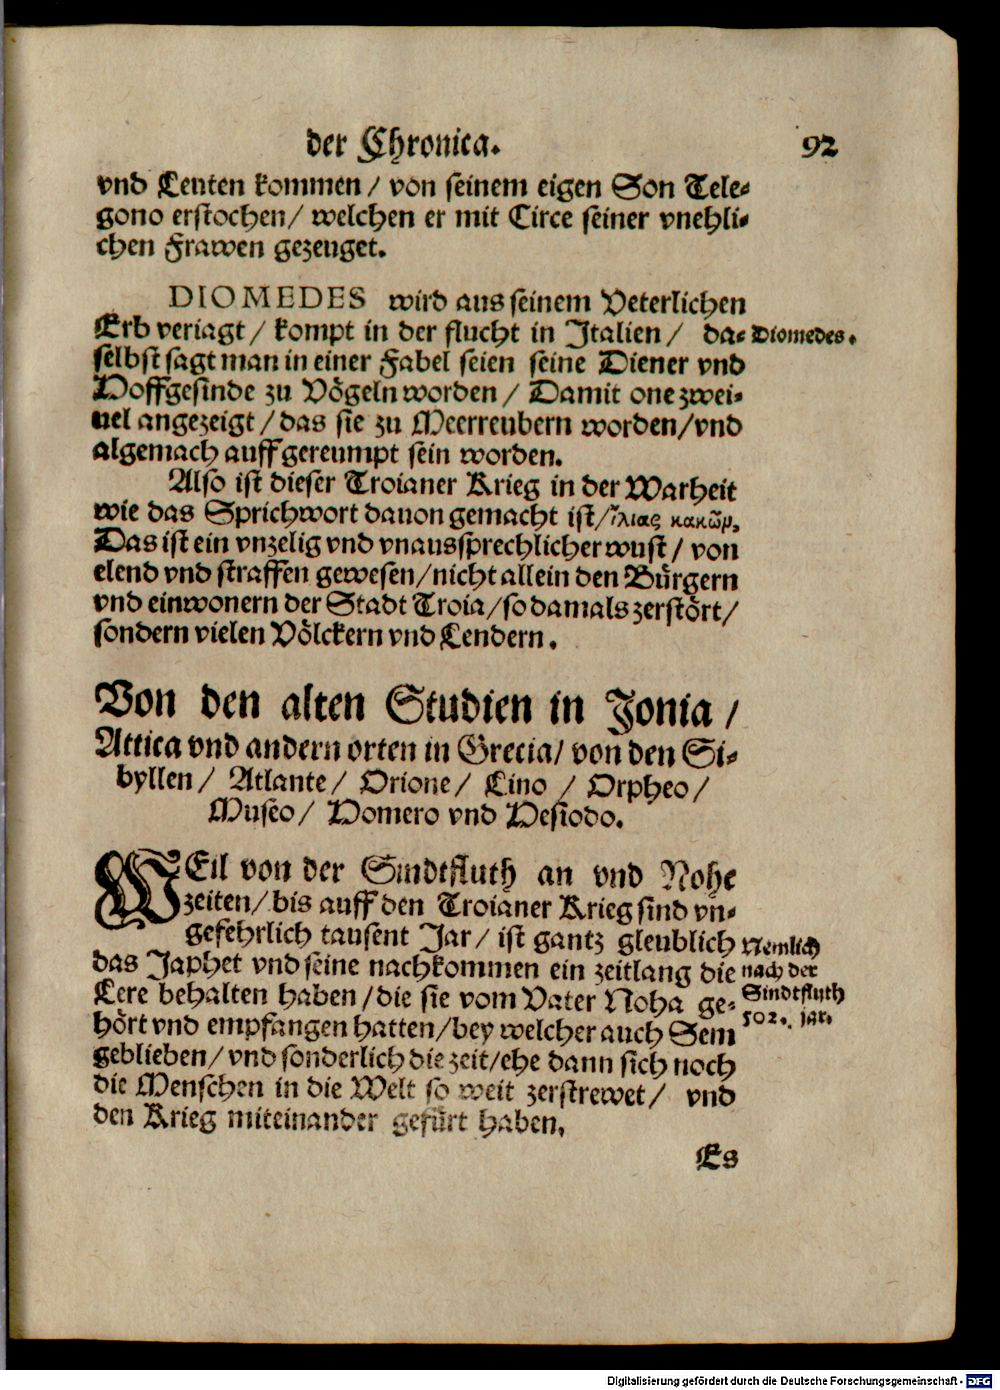 der Chronica. 92
vnd Leuten kommen / von seinem eigen Son Tele-
gono erstochen / welchen er mit Circe seiner vnehli-
chen Frawen gezeuget.
DIOMEDES wird aus seinem Veterlichen
Erb veriagt / kompt in der flucht in Italien / da-
Diomedes.
selbst sagt man in einer Fabel seien seine Diener vnd
Hoffgesinde zu Vögeln worden / Damit one zwei-
uel angezeigt / das sie zu Meerreubern worden / vnd
algemach auffgereumpt sein worden.
Also ist dieser Troianer Krieg in der Warheit
wie das Sprichwort dauon gemacht ist / ἴλιας κακῶν,
Das ist ein vnzelig vnd vnaussprechlicher wust / von
elend vnd straffen gewesen / nicht allein den Bürgern
vnd einwonern der Stadt Troia / so damals zerstört /
sondern vielen Völckern vnd Lendern.
Von den alten Studien in Jonia /
Attica vnd andern orten in Grecia / von den Si-
byllen / Atlante / Orione / Lino / Orpheo /
Museo / Homero vnd Hesiodo.
WEil von der Sindtfluth an vnd Nohe
zeiten / bis auff den Troianer Krieg sind vn-
gefehrlich tausent Jar / ist gantz gleublich
das Japhet vnd seine nachkommen ein zeitlang die
Lere behalten haben / die sie vom Vater Noha ge-
hört vnd empfangen hatten / bey welcher auch Sem
geblieben / vnd sonderlich die zeit / ehe dann sich noch
die Menschen in die Welt so weit zerstrewet / vnd
den Krieg miteinander gefürt haben,
Nemlich
nach der
Sindtfluth
502. jar.
Es
Digitalisierung gefördert durch die Deutsche Forschungsgemeinschaft - DFG